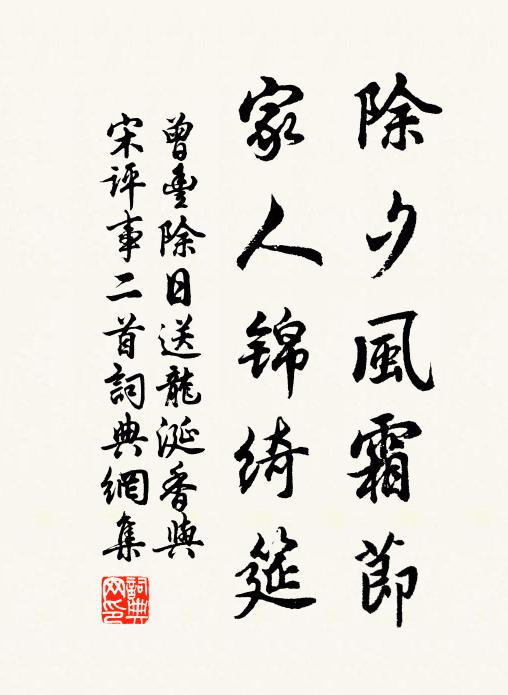 除夕風霜節
家人錦綺筵
曾豊除日送龍涎香與
宋評事二首詞典網集
詞典
网印